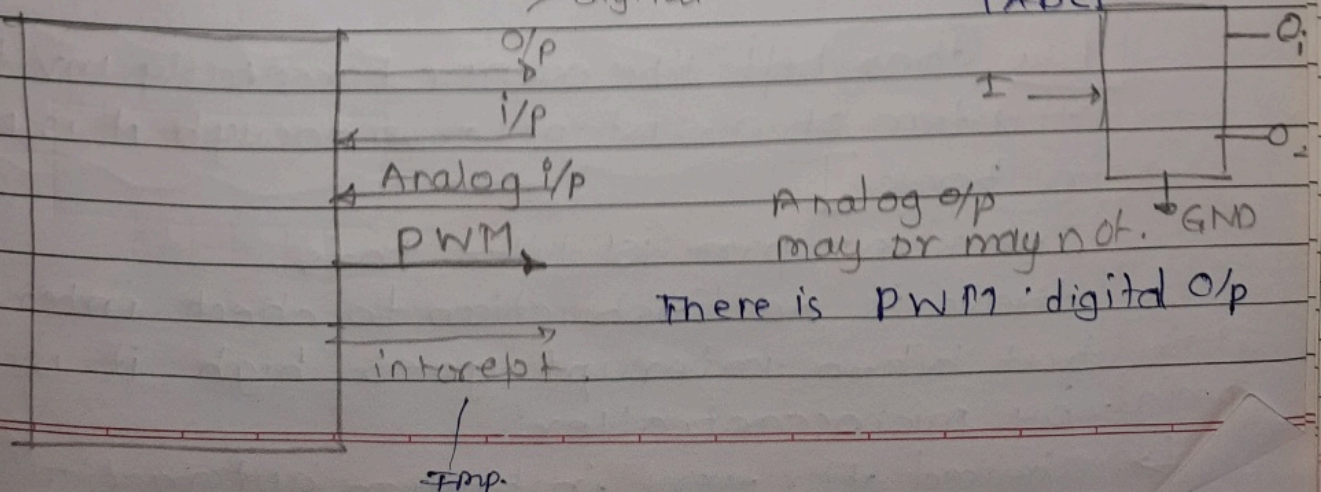 O/p
i/p
Analog i/p
PWM
interept.
Imp.
I
O1
O2
GND
Analog o/p
may or may not.
There is PWM digital O/p